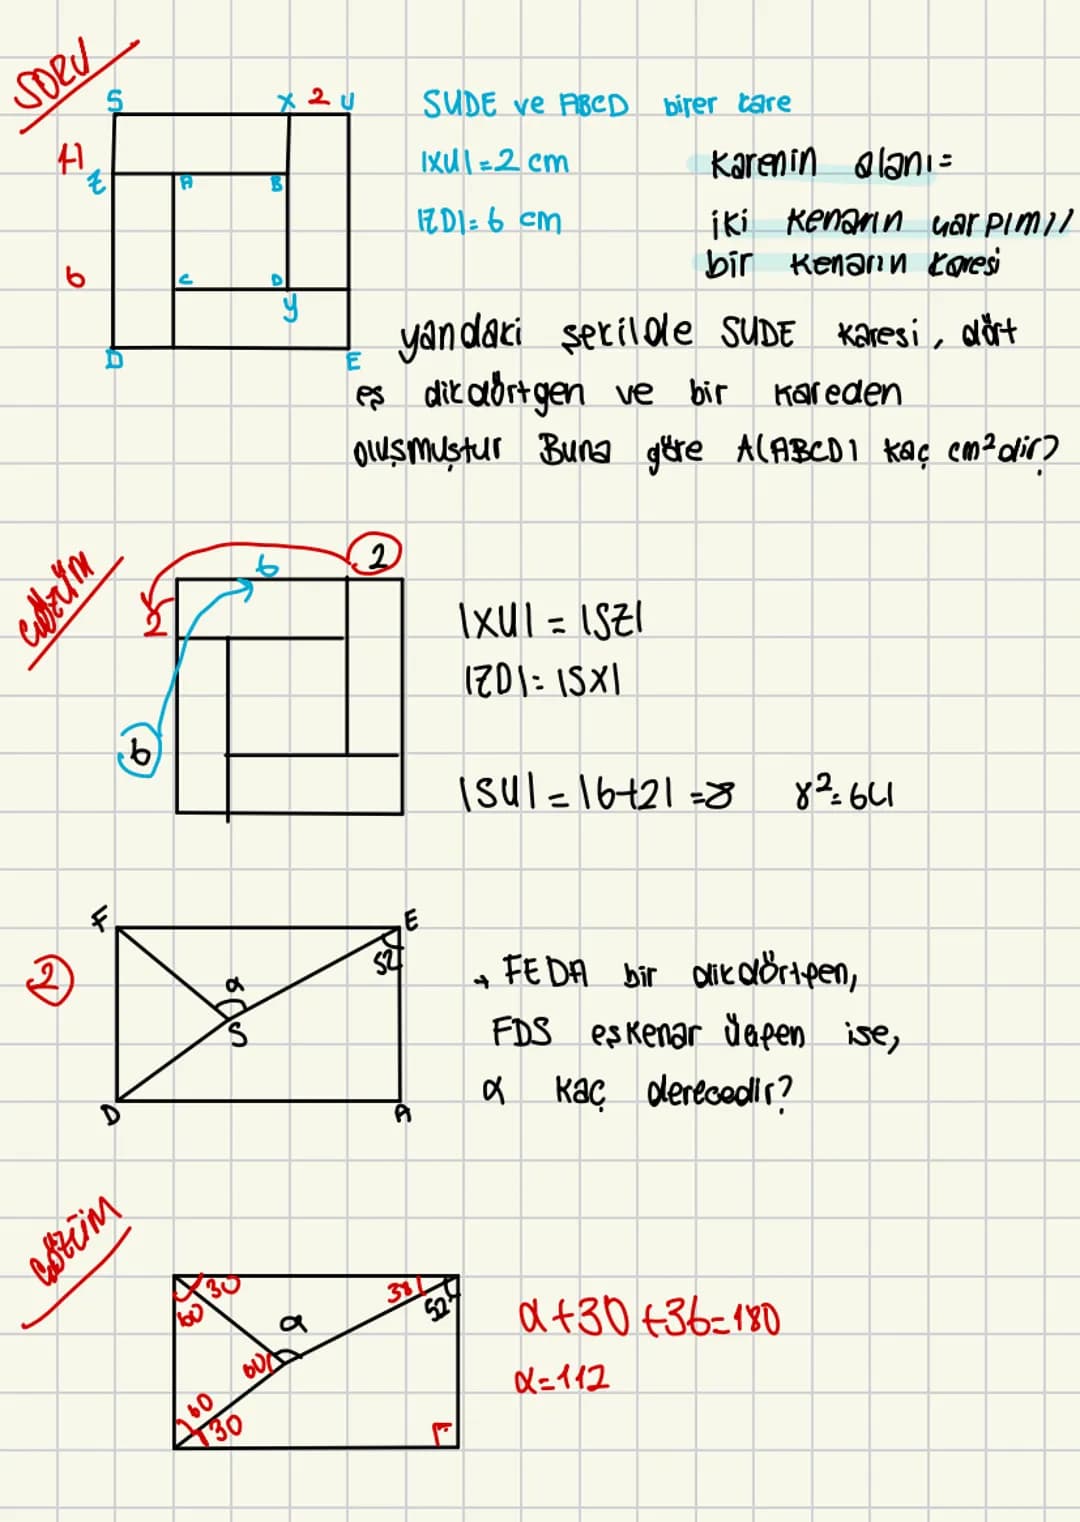 SORU
S X 2 U
SUDE ve ABCD birer kare
|XU| = 2 cm
|ZD| = 6 cm
Karenin alanı =
iki kenarın çarpımı //
bir kenarın karesi
Z A B
6 C D
y
D E
yandaki şekilde SUDE karesi, dört
eş dikdörtgen ve bir kareden
oluşmuştur Buna göre A(ABCD) kaç cm² dir?
ÇÖZÜM
6 2
2
6
|XU| = |SZ|
|ZD| = |SX|
|SU| = |6+2| = 8 8² = 64
2
F E
52
α
S
D A
→ FEDA bir dikdörtgen,
FDS eşkenar üçgen ise,
α kaç derecedir?
ÇÖZÜM
30 38 52
60 α
60
60
30
α + 30 + 36 = 180
α = 112